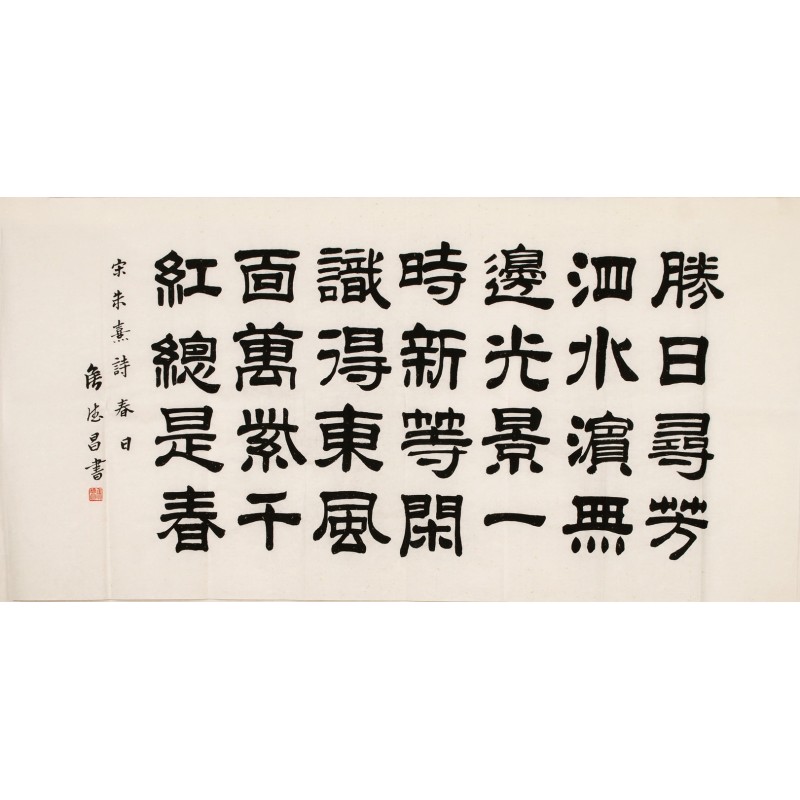 勝日尋芳
泗水濱無
邊光景一
時新等閑
識得東風
面萬紫千
紅總是春
宋朱熹詩春日
德昌書